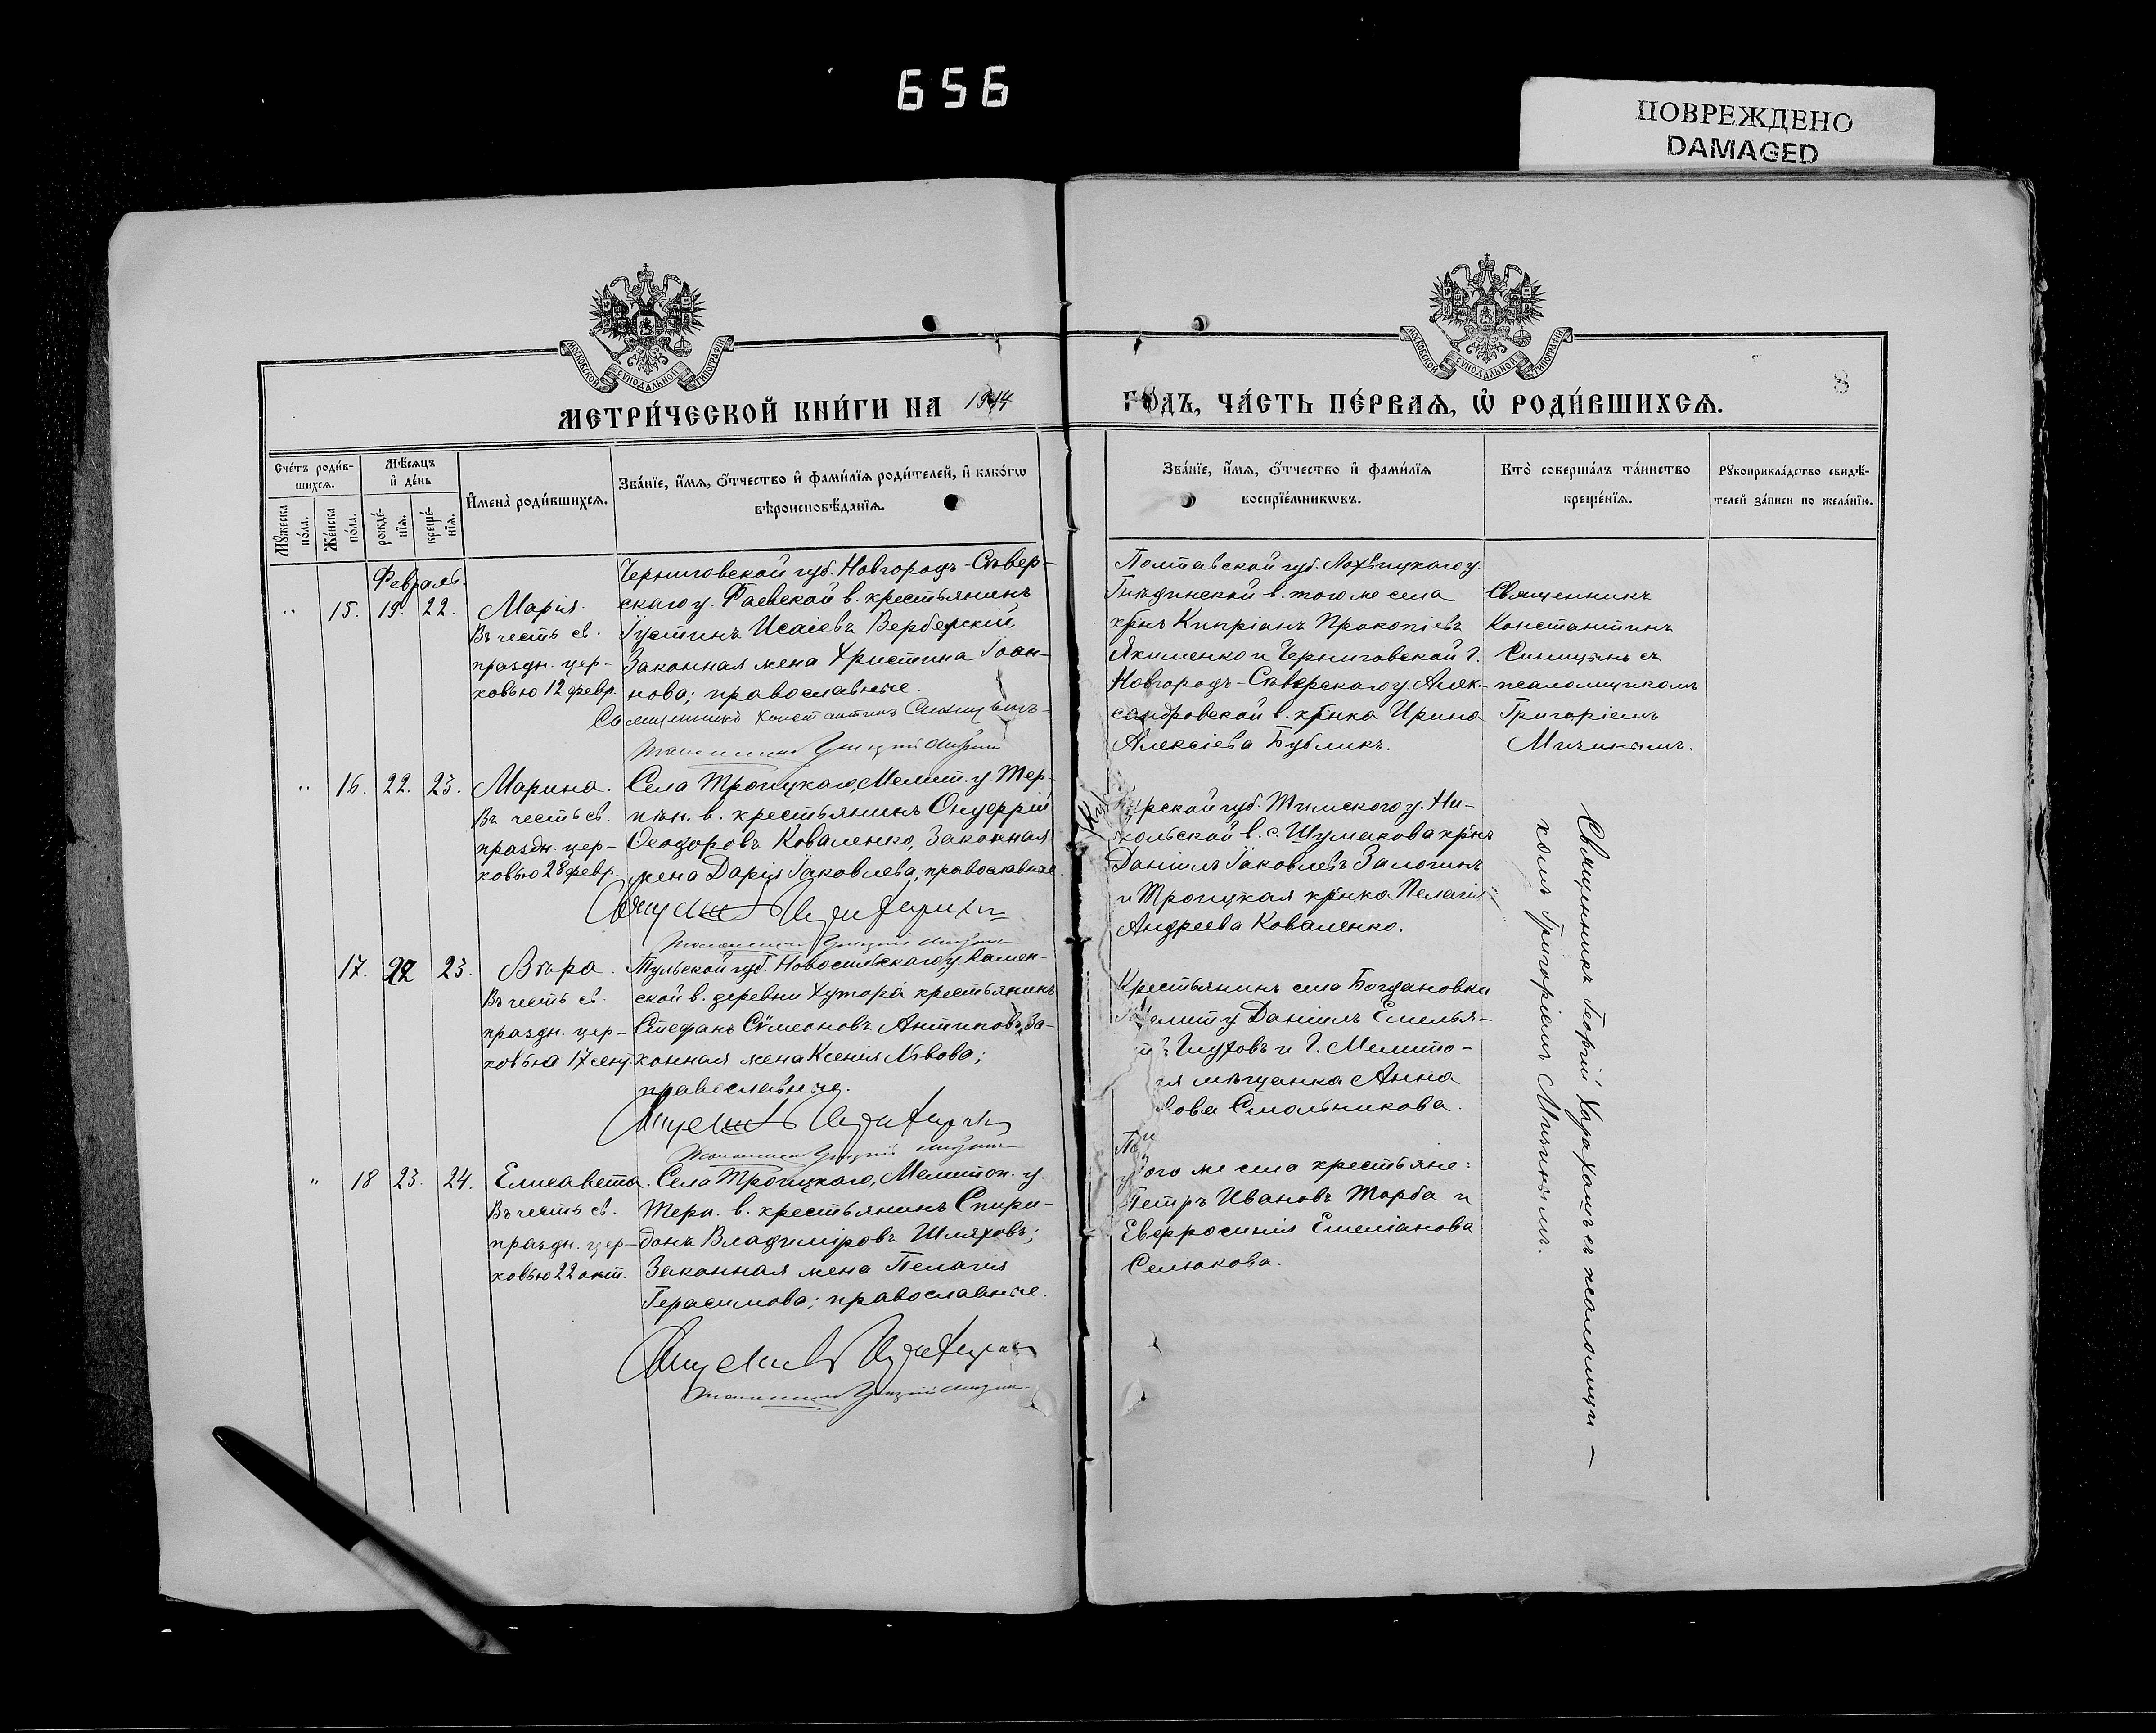 656
ПОВРЕЖДЕНО
DAMAGED
МОСКОВСКОЙ СУНОДАЛЬНОЙ ТИПОГРАФІИ
МОСКОВСКОЙ СУНОДАЛЬНОЙ ТИПОГРАФІИ
8
МЕТРИ́ЧЕСКОЙ КНИ́ГИ НА 1914
ГОДЪ, ЧА́СТЬ ПЕ́РВАѦ, Ѡ҆ РОДИ́ВШИХСѦ.
Сче́тъ роди́в-
шихсѧ.
Мꙋ́жеска по́ла.
Же́нска по́ла.
Мѣ́сѧцъ
и҆ де́нь
рожде́-
нїѧ.
креще́-
нїѧ.
И҆мена̀ роди́вшихсѧ.
Зва́нїе, и҆́мѧ, ѻ҆́тчество и҆ фами́лїѧ роди́телей, и҆ како́гѡ
вѣроисповѣ́данїѧ.
Зва́нїе, и҆́мѧ, ѻ҆́тчество и҆ фами́лїѧ
воспрїе́мникѡвъ.
Кто̀ соверша́лъ та́инство
креще́нїѧ.
Рꙋкоприкла́дство свидѣ́-
телей за́писи по жела́нїю.
Февраль.
" 15. 19. 22.
Марія.
Въ честь св.
праздн. цер-
ковью 12 февр.
Черниговской губ. Новгородъ-Сѣвер-
скаго у. Фаевской в. крестьянинъ
Іустинъ Исаіевъ Верберскій,
Законная жена Христина Іоан-
нова; православные.
Священникъ Константинъ
Полтавской губ. Лохвицкаго у.
Гнѣдинской в. того же села
кр-нъ Кипріанъ Прокопіевъ
Якименко и Черниговской г.
Новгородъ-Сѣверскаго у. Алек-
сандровской в. кр-нка Ирина
Алексіева Бубликъ.
Священникъ
Константинъ
съ
псаломщикомъ
Григоріемъ
" 16. 22. 23.
Марина.
Въ честь св.
праздн. цер-
ковью 28 февр.
Села Троицкаго, Мелит. у. Тер-
пѣн. в. крестьянинъ Онуфрій
Ѳеодоровъ Коваленко, Законная
жена Дарія Іаковлева; православные.
Курской губ. Тимскаго у. Ни-
кольской в. с. Шумакова кр-нъ
Даніилъ Іаковлевъ Залогинъ
и Троицкая кр-нка Пелагія
Андреева Коваленко.
17. 22 23.
Вѣра.
Въ честь св.
праздн. цер-
ковью 17 сент.
Тульской губ. Новосильскаго у. Камен-
ской в. деревни Хутора крестьянинъ
Стефанъ Сѵмеоновъ Антиповъ, За-
конная жена Ксенія Львова;
православные.
Крестьянинъ села Богдановки
Мелит. у. Даніилъ Емелья-
Глуховъ и г. Мелито-
мѣщанка Анна
Смольникова.
" 18 23. 24.
Елисавета.
Въ честь св.
праздн. цер-
ковью 22 окт.
Села Троицкаго, Мелитоп. у.
Терп. в. крестьянинъ Спири-
донъ Владиміровъ Шляховъ;
Законная жена Пелагія
Герасимова; православные.
того же села крестьяне:
Петръ Ивановъ Торба и
Евфросинія Емеліанова
Селюкова.
Священникъ Георгій съ псаломщи-
комъ Григоріемъ